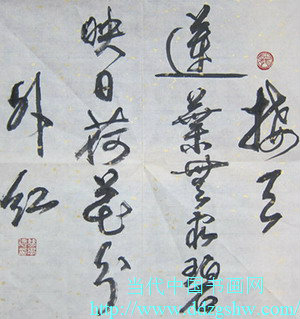 接天
蓮葉無窮碧
映日荷花分
外红
当代中国书画网
http://www.ddzgshw.com